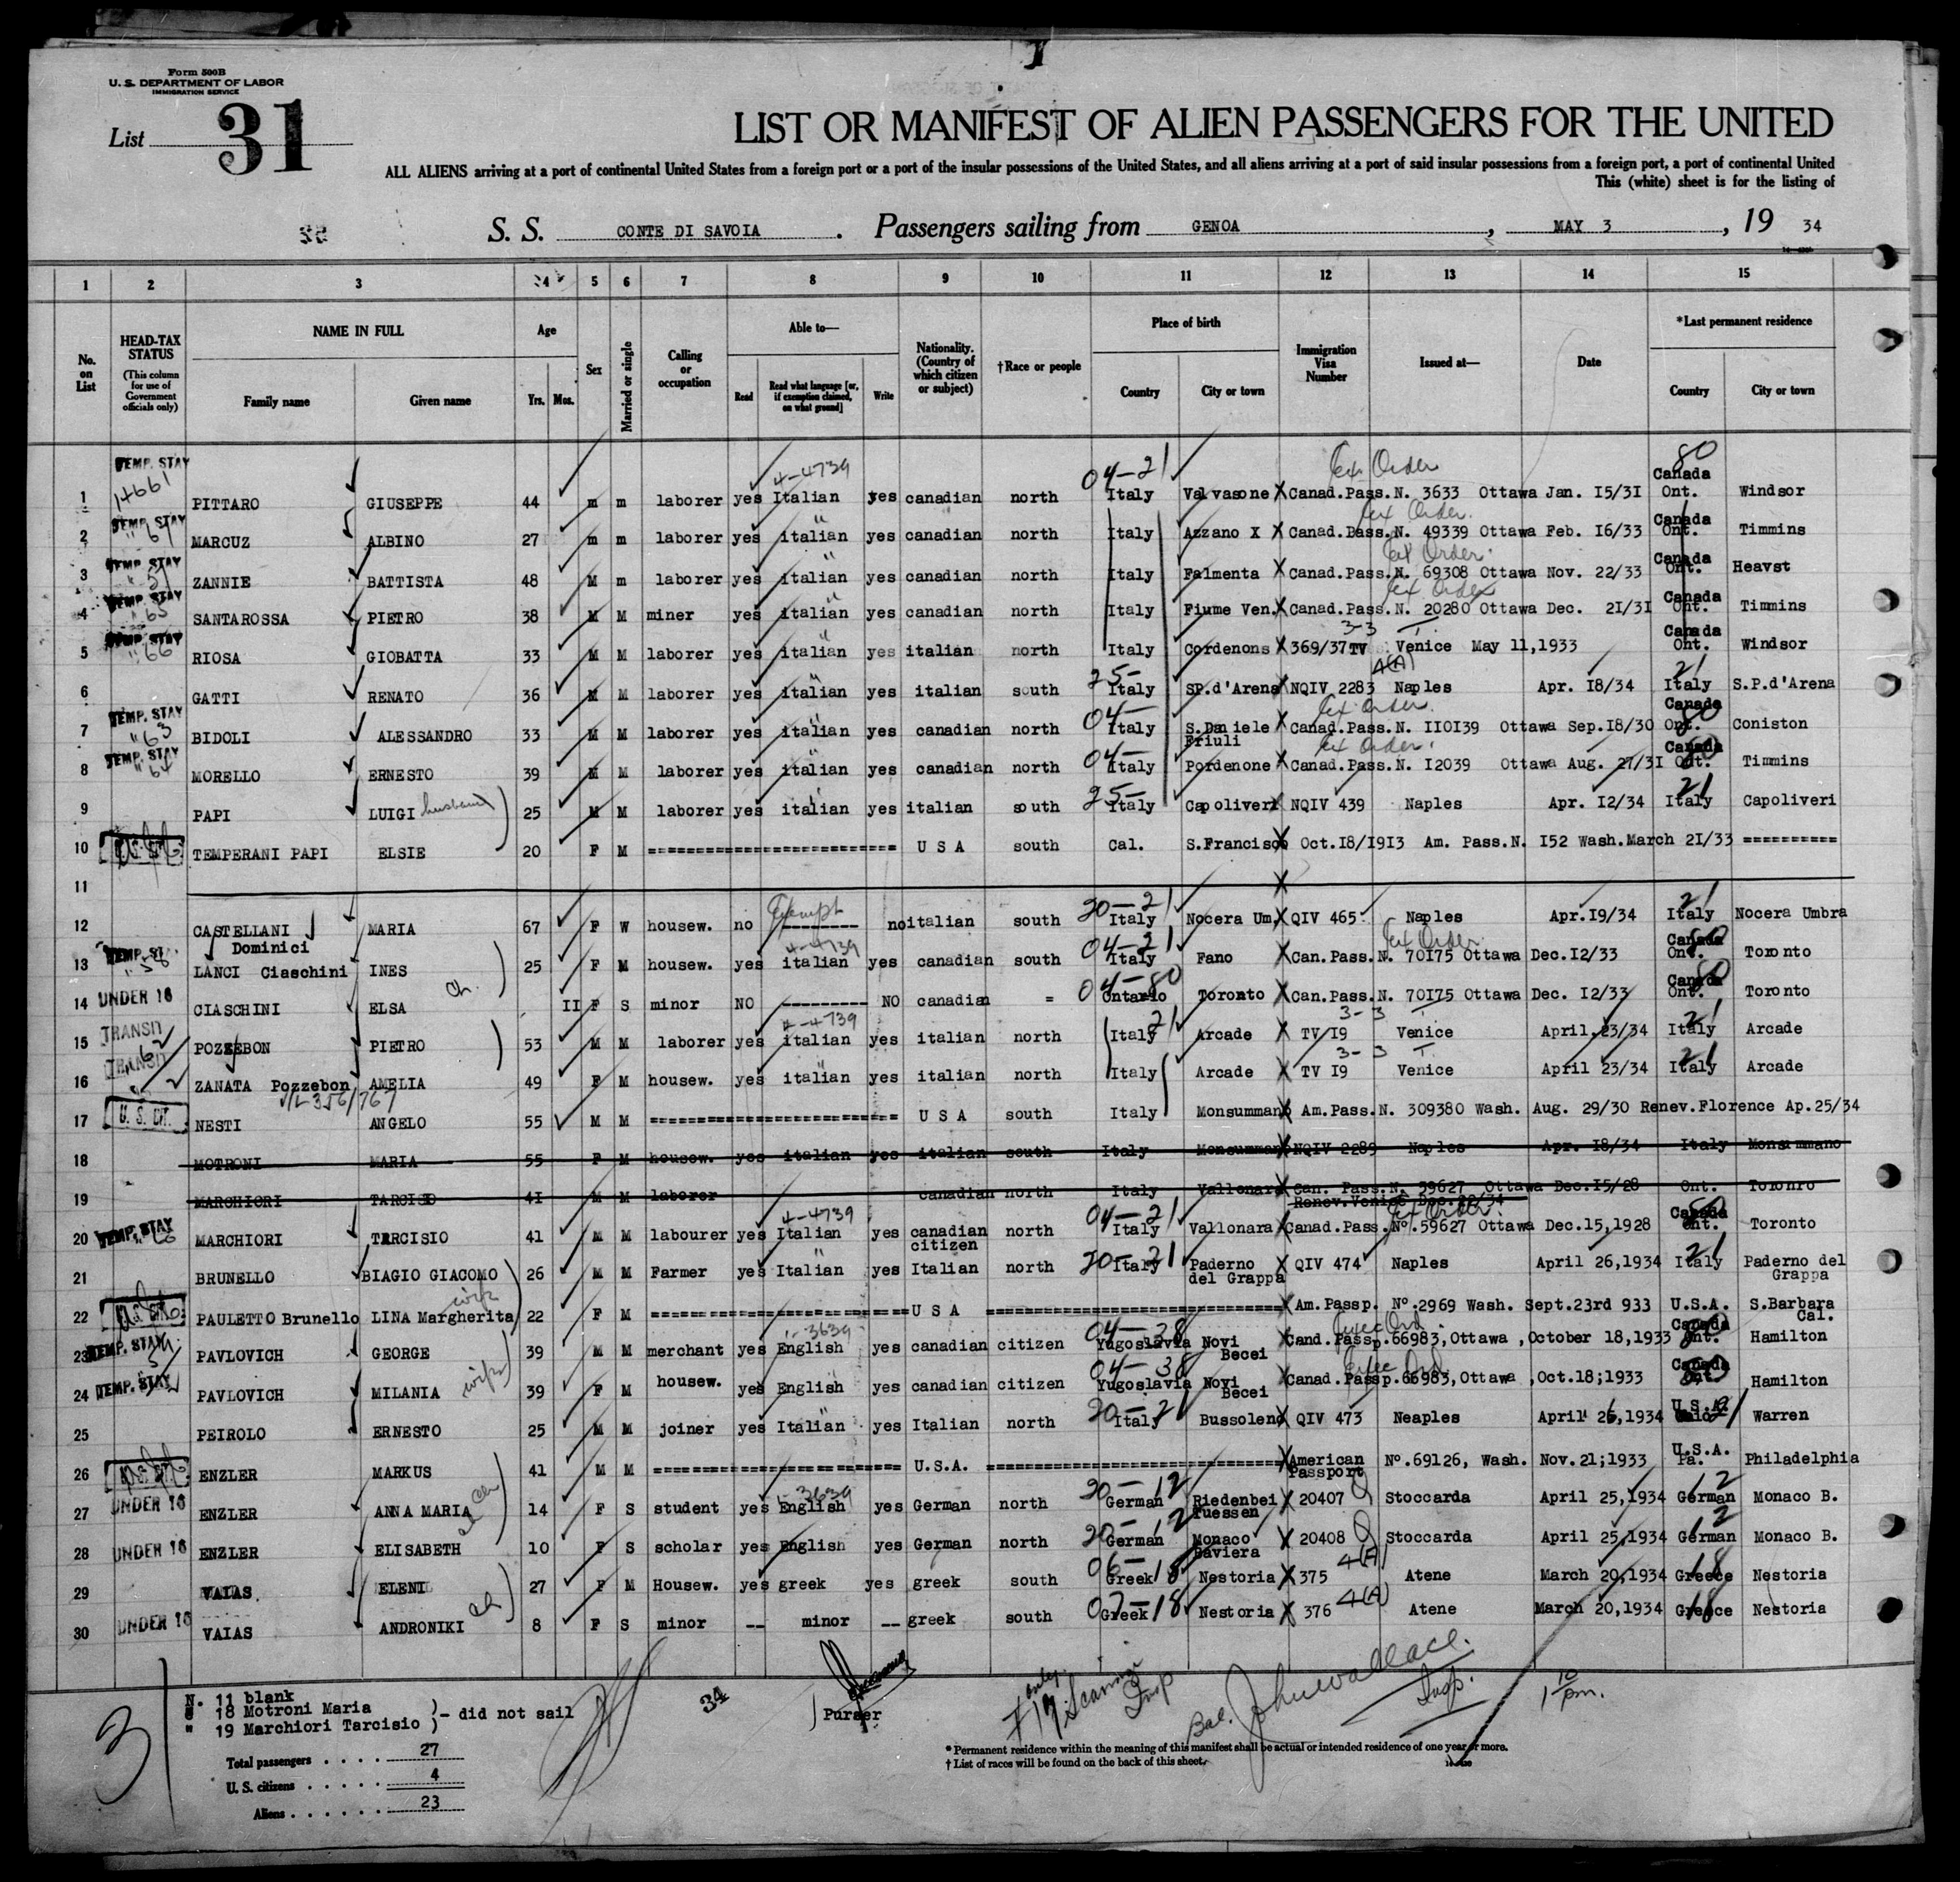 Form 500B
U. S. DEPARTMENT OF LABOR
IMMIGRATION SERVICE
List 31
LIST OR MANIFEST OF ALIEN PASSENGERS FOR THE UNITED
ALL ALIENS arriving at a port of continental United States from a foreign port or a port of the insular possessions of the United States, and all aliens arriving at a port of said insular possessions from a foreign port, a port of continental United
This (white) sheet is for the listing of
S. S. CONTE DI SAVOIA. Passengers sailing from GENOA, MAY 3, 19 34
1 2 3 4 5 6 7 8 9 10 11 12 13 14 15
No. on List
HEAD-TAX STATUS (This column for use of Government officials only)
NAME IN FULL Family name Given name
Age Yrs. Mos.
Sex
Married or single
Calling or occupation
Able to— Read Read what language [or, if exemption claimed, on what ground] Write
Nationality. (Country of which citizen or subject)
†Race or people
Place of birth Country City or town
Immigration Visa Number
Issued at—
Date
*Last permanent residence Country City or town
1 TEMP. STAY 14661 PITTARO GIUSEPPE 44 m m laborer yes Italian 4-4739 yes canadian north 04-21 Italy Valvasone Canad.Pass.N. 3633 Ex Order Ottawa Jan. I5/3I 80 Canada Ont. Windsor
2 TEMP. STAY " 61 MARCUZ ALBINO 27 m m laborer yes italian " yes canadian north Italy Azzano X Canad.Pass.N. 49339 Ex Order. Ottawa Feb. I6/33 Canada Ont. Timmins
3 TEMP. STAY ZANNIE BATTISTA 48 M m laborer yes italian " yes canadian north Italy Falmenta Canad.Pass.N. 69308 Ex Order. Ottawa Nov. 22/33 Canada Ont. Heavst
4 TEMP. STAY " 65 SANTAROSSA PIETRO 38 M M miner yes italian " yes canadian north Italy Fiume Ven. Canad.Pass.N. 20280 Ex Order Ottawa Dec. 2I/3I Canada Ont. Timmins
5 TEMP. STAY " 66 RIOSA GIOBATTA 33 M M laborer yes italian " yes italian north Italy Cordenons 369/37TV 3-3 Venice May 11,1933 Canada Ont. Windsor
6 GATTI RENATO 36 M M laborer yes italian " yes italian south 25- Italy SP.d'Arena NQIV 2283 4(A) Naples Apr. I8/34 21 Italy S.P.d'Arena
7 TEMP. STAY " 63 BIDOLI ALESSANDRO 33 M M laborer yes italian " yes canadian north 04- Italy S.Daniele Friuli Canad.Pass.N. IIOI39 Ex Order. Ottawa Sep.I8/30 Canada Ont. 80 Coniston
8 TEMP. STAY " 64 MORELLO ERNESTO 39 M M laborer yes italian " yes canadian north 04- Italy Pordenone Canad.Pass.N. I2039 Ex Order. Ottawa Aug. 27/3I Canada Ont. Timmins
9 PAPI LUIGI husband 25 M M laborer yes italian " yes italian south 25- Italy Capoliveri NQIV 439 Naples Apr. I2/34 21 Italy Capoliveri
10 TEMPERANI PAPI ELSIE 20 F M ========================== U S A south Cal. S.Francisco Oct.I8/I9I3 Am. Pass.N. I52 Wash.March 2I/33 ==========
11
12 CASTELLANI MARIA 67 F W housew. no Exempt --------- no italian south 20-21 Italy Nocera Um. QIV 465 Naples Apr.I9/34 21 Italy Nocera Umbra
13 TEMP. ST. " 58 Dominici LANCI Ciaschini INES 25 F M housew. yes italian 4-4739 yes canadian south 04-21 Italy Fano Can.Pass.N. 70I75 Ex Order. Ottawa Dec.I2/33 Canada Ont. Toronto
14 UNDER 16 CIASCHINI ELSA ch. II F S minor NO --------- NO canadian = 04-80 Ontario Toronto Can.Pass.N. 70I75 Ottawa Dec. I2/33 Canada Ont. 80 Toronto
15 TRANSIT POZZEBON PIETRO 53 M M laborer yes italian 4-4739 yes italian north 21 Italy Arcade TV I9 3-3 Venice April.23/34 21 Italy Arcade
16 TRANSIT ZANATA Pozzebon AMELIA 49 F M housew. yes italian " yes italian north Italy Arcade TV I9 3-3 Venice April 23/34 21 Italy Arcade
17 U. S. CIT. NESTI ANGELO 55 M M ========================== U S A south Italy Monsummano Am.Pass.N. 309380 Wash. Aug. 29/30 Renev.Florence Ap.25/34
18 MOTRONI MARIA 55 F M housew. yes italian yes italian south Italy Monsummano NQIV 2289 Naples Apr. I8/34 Italy Monsummano
19 MARCHIORI TARCISIO 4I M M laborer canadian north Italy Vallonara Can. Pass.N. 59627 Ottawa Dec.I5/28 Renev.Venice Dec.22/34 Ont. Toronto
20 TEMP. STAY MARCHIORI TARCISIO 41 M M labourer yes Italian 4-4739 yes canadian citizen north 04-21 Italy Vallonara Canad.Pass.Nº.59627 Ex Order. Ottawa Dec.15,1928 Canada Ont. Toronto
21 BRUNELLO BIAGIO GIACOMO 26 M M Farmer yes Italian " yes Italian north 20-21 Italy Paderno del Grappa QIV 474 Naples April 26,1934 21 Italy Paderno del Grappa
22 PAULETTO Brunello LINA Margherita wife 22 F M ========================== U S A ============================= Am.Passp. Nº.2969 Wash. Sept.23rd 933 U.S.A. S.Barbara Cal.
23 TEMP. STAY PAVLOVICH GEORGE 39 M M merchant yes English 1-3639 yes canadian citizen 04-38 Yugoslavia Novi Becei Cand.Passp.66983,Ottawa ,October 18,1933 Canada Ont. Hamilton
24 TEMP. STAY PAVLOVICH MILANIA wife 39 F M housew. yes English yes canadian citizen 04-38 Yugoslavia Novi Becei Canad.Passp.66983,Ottawa ,Oct.18;1933 Canada Ont. Hamilton
25 PEIROLO ERNESTO 25 M M joiner yes Italian " yes Italian north 20-21 Italy Bussoleno QIV 473 Neaples April 26,1934 U.S.A. Warren
26 ENZLER MARKUS 41 M M ========================== U.S.A. ============================= American Passport Nº.69126, Wash. Nov.21;1933 U.S.A. Pa. Philadelphia
27 UNDER 16 ENZLER ANNA MARIA ch 14 F S student yes English 1-3639 yes German north 20-12 German Riedenbei Fuessen 20407 Stoccarda April 25,1934 12 German Monaco B.
28 UNDER 16 ENZLER ELISABETH ch 10 F S scholar yes English yes German north 20-12 German Monaco Baviera 20408 Stoccarda April 25,1934 12 German Monaco B.
29 VAIAS ELENI 27 F M Housew. yes greek yes greek south 06-18 Greek Nestoria 375 4(A) Atene March 20,1934 18 Greece Nestoria
30 UNDER 16 VAIAS ANDRONIKI ch 8 F S minor -- minor -- greek south 07-18 Greek Nestoria 376 4(A) Atene March 20,1934 18 Greece Nestoria
N. 11 blank
" 18 Motroni Maria )
" 19 Marchiori Tarcisio ) - did not sail
Total passengers . . . . 27
U. S. citizens . . . . . 4
Aliens . . . . . . 23
31
34
Purser
only
Insp
Bal. John Wallace.
Insp.
1 10 pm.
* Permanent residence within the meaning of this manifest shall be actual or intended residence of one year or more.
† List of races will be found on the back of this sheet.